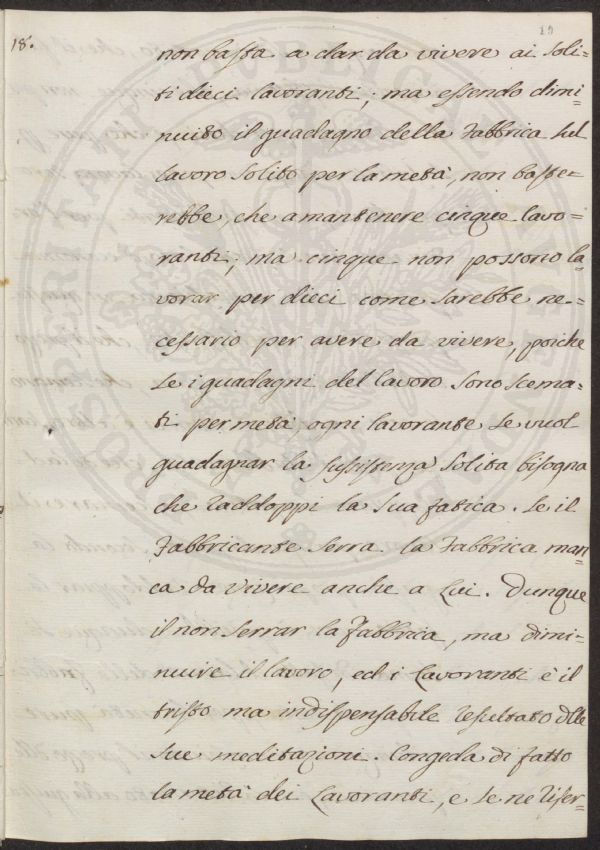 19
18.
non basta a dar da vivere ai soli-
ti dieci lavoranti; ma essendo dimi-
nuito il guadagno della Fabbrica sul
lavoro solito per la metà, non baste-
rebbe, che a mantenere cinque lavo-
ranti; ma cinque non possono la-
vorar per dieci come sarebbe ne-
cessario per avere da vivere, poiche
se i guadagni del lavoro sono scema-
ti per metà, ogni lavorante se vuol
guadagnar la sussistenza solita bisogna
che raddoppi la sua fatica. Se il
Fabbricante serra la Fabbrica man-
ca da vivere anche a Lui. Dunque
il non serrar la Fabbrica, ma dimi-
nuire il lavoro, ed i Lavoranti è il
tristo ma indispensabile resultato dlle
sue meditazioni. Congeda di fatto
la metà dei Lavoranti, e se ne riser-